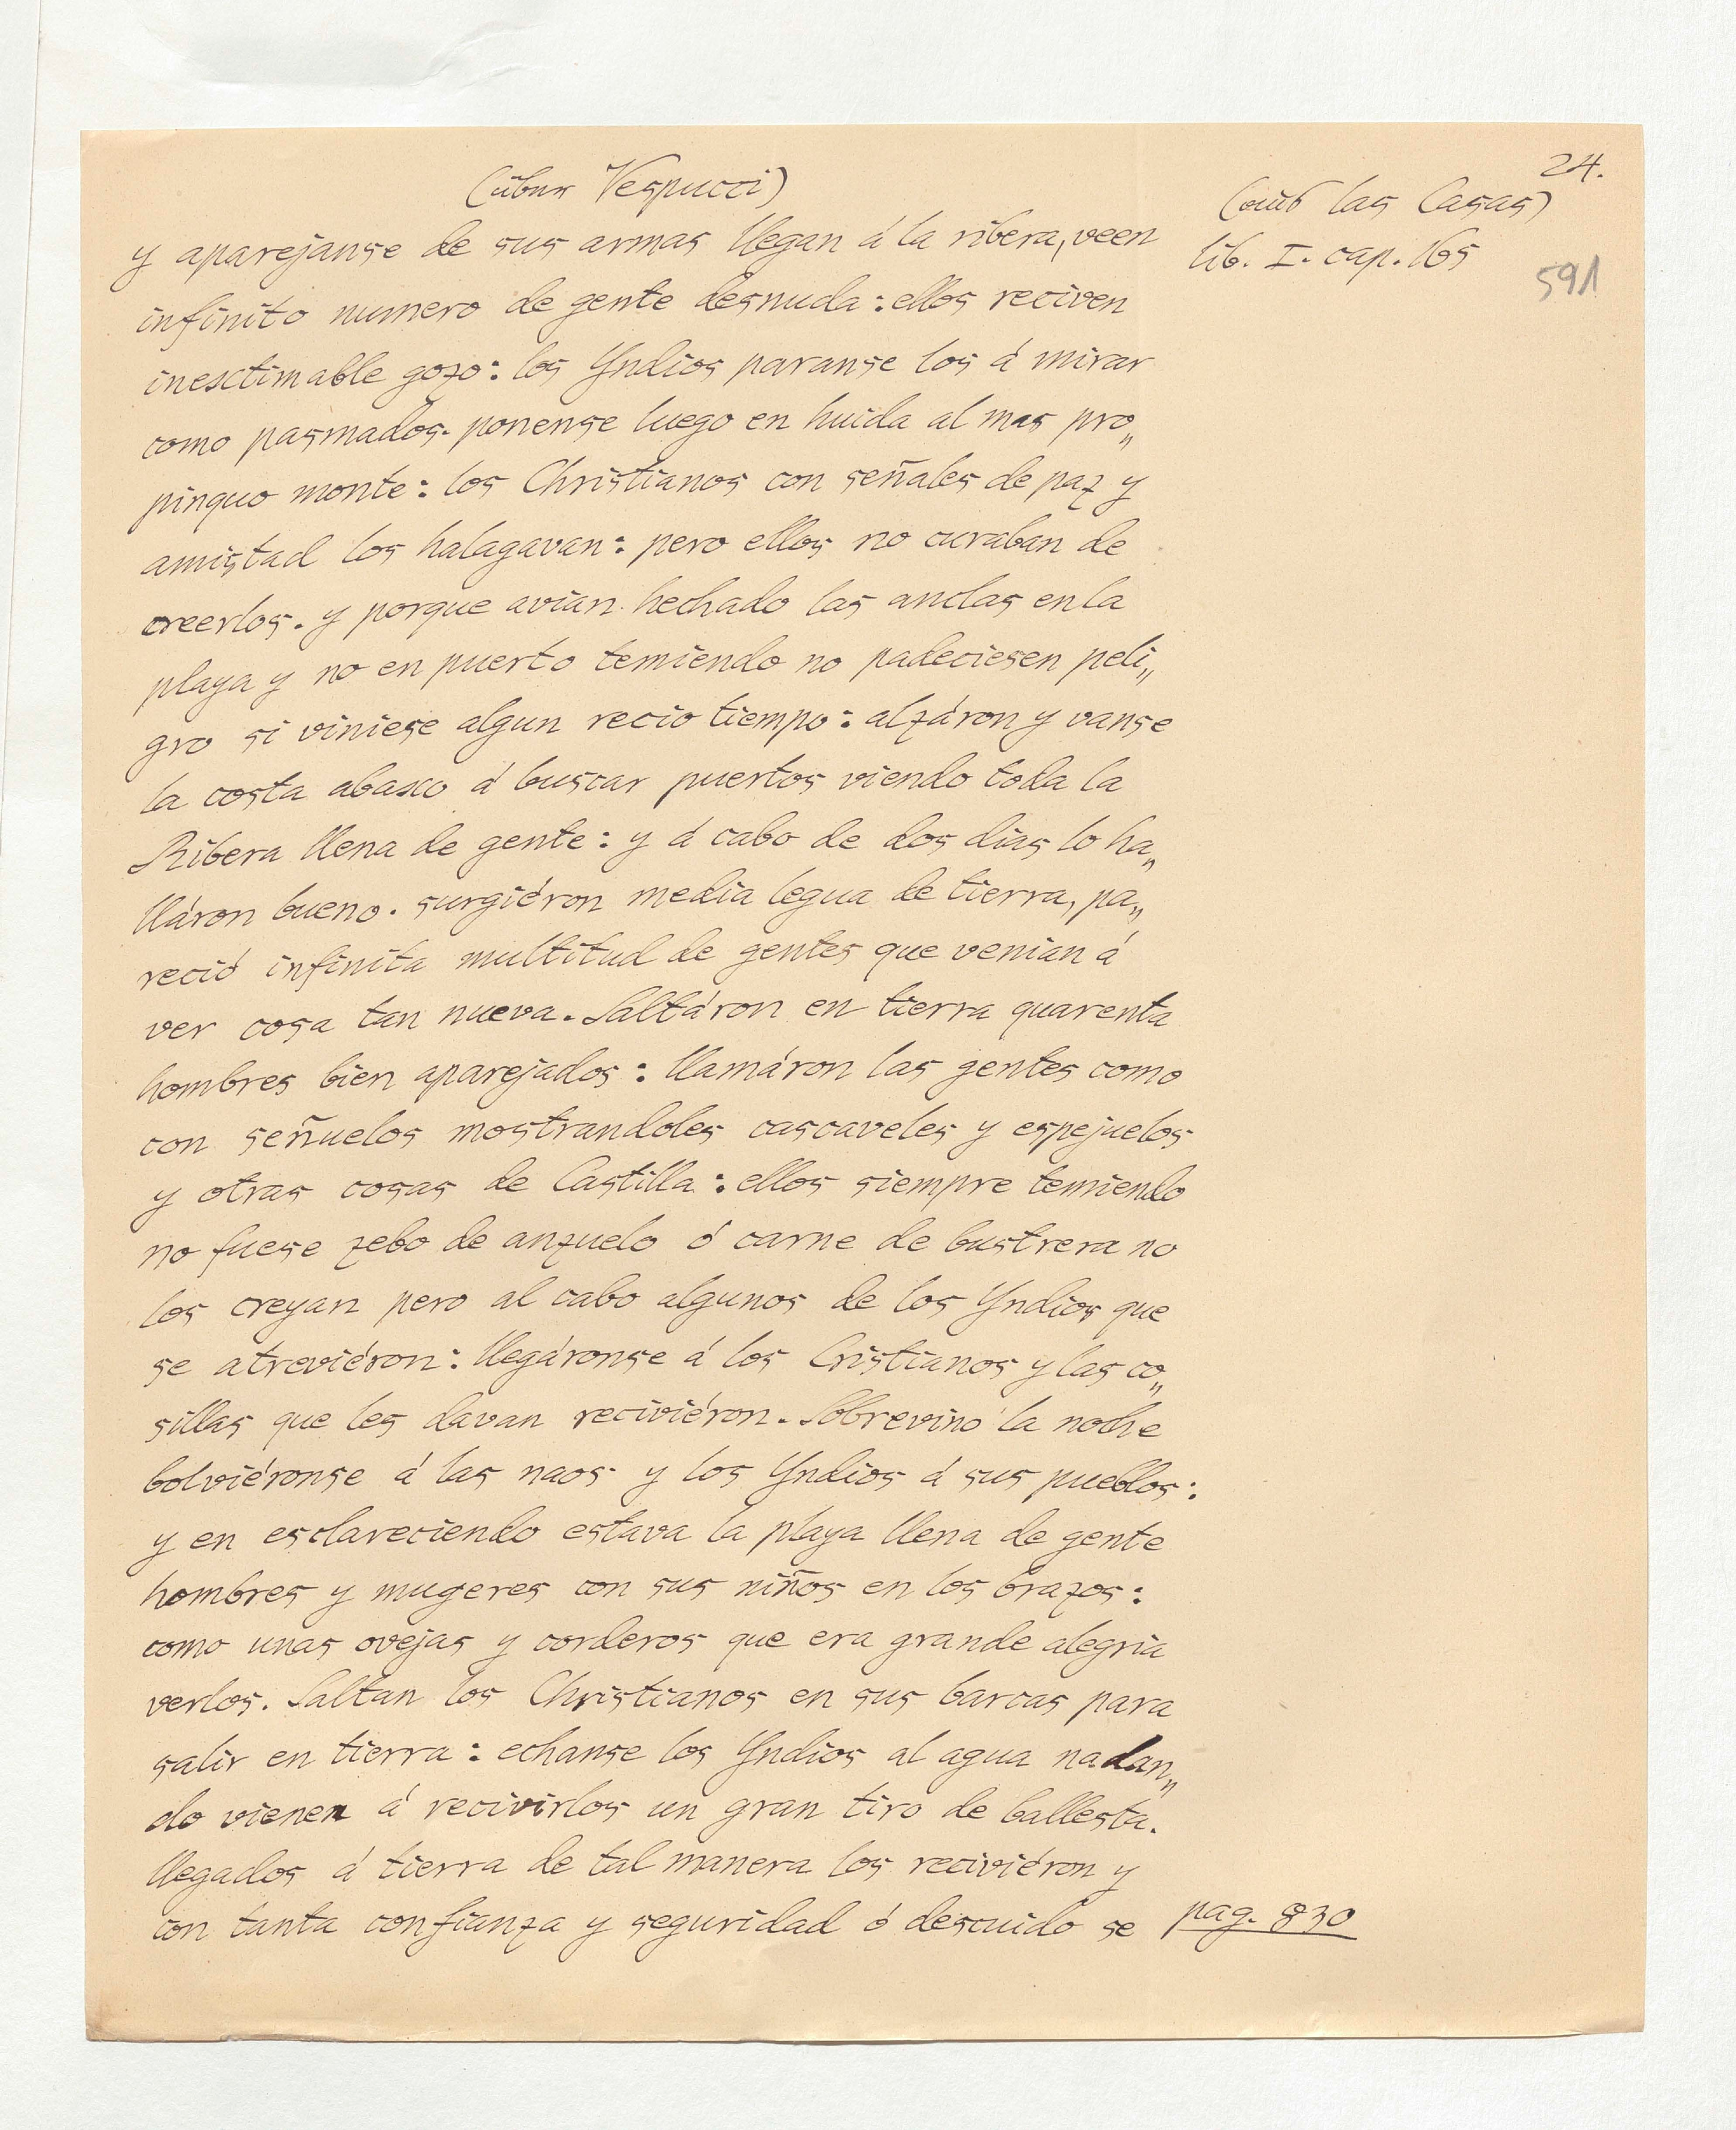 24.
(über Vespucci)
(aus las Casas)
lib. I. cap. 165
591
y aparejanse de sus armas llegan á la ribera, veen
infinito numero de gente desnuda: ellos reciven
inesctimable gozo: los Yndios paranse los á mirar
como pasmados. ponense luego en huida al mas pro„
pinquo monte: los Christianos con señales de paz y
amistad los halagavan: pero ellos no curaban de
creerlos. y porque avian hechado las anclas en la
playa y no en puerto temiendo no padeciesen peli„
gro si viniese algun recio tiempo: alzáron y vanse
la costa abaxo á buscar puertos viendo toda la
Ribera llena de gente: y á cabo de dos dias lo ha„
lláron bueno. surgiéron media legua de tierra, pa„
reció infinita multitud de gentes que venian á
ver cosa tan nueva. Saltáron en tierra quarenta
hombres bien aparejados: llamáron las gentes como
con señuelos mostrandoles cascaveles y espejuelos
y otras cosas de Castilla: ellos siempre temiendo
no fuese zebo de anzuelo ó carne de bustrera no
los creyan pero al cabo algunos de los Yndios que
se atreviéron: llegáronse á los Cristianos y las co„
sillas que les davan reciviéron. Sobrevino la noche
bolviéronse á las naos y los Yndios á sus pueblos:
y en esclareciendo estava la playa llena de gente
hombres y mugeres con sus niños en los brazos:
como unas ovejas y corderos que era grande alegria
verlos. Saltan los Christianos en sus barcas para
salir en tierra: echanse los Yndios al agua nadan„
do vienen á recivirlos un gran tiro de ballesta.
llegados á tierra de tal manera los reciviéron y
con tanta confianza y seguridad ó descuido se
pag. 830